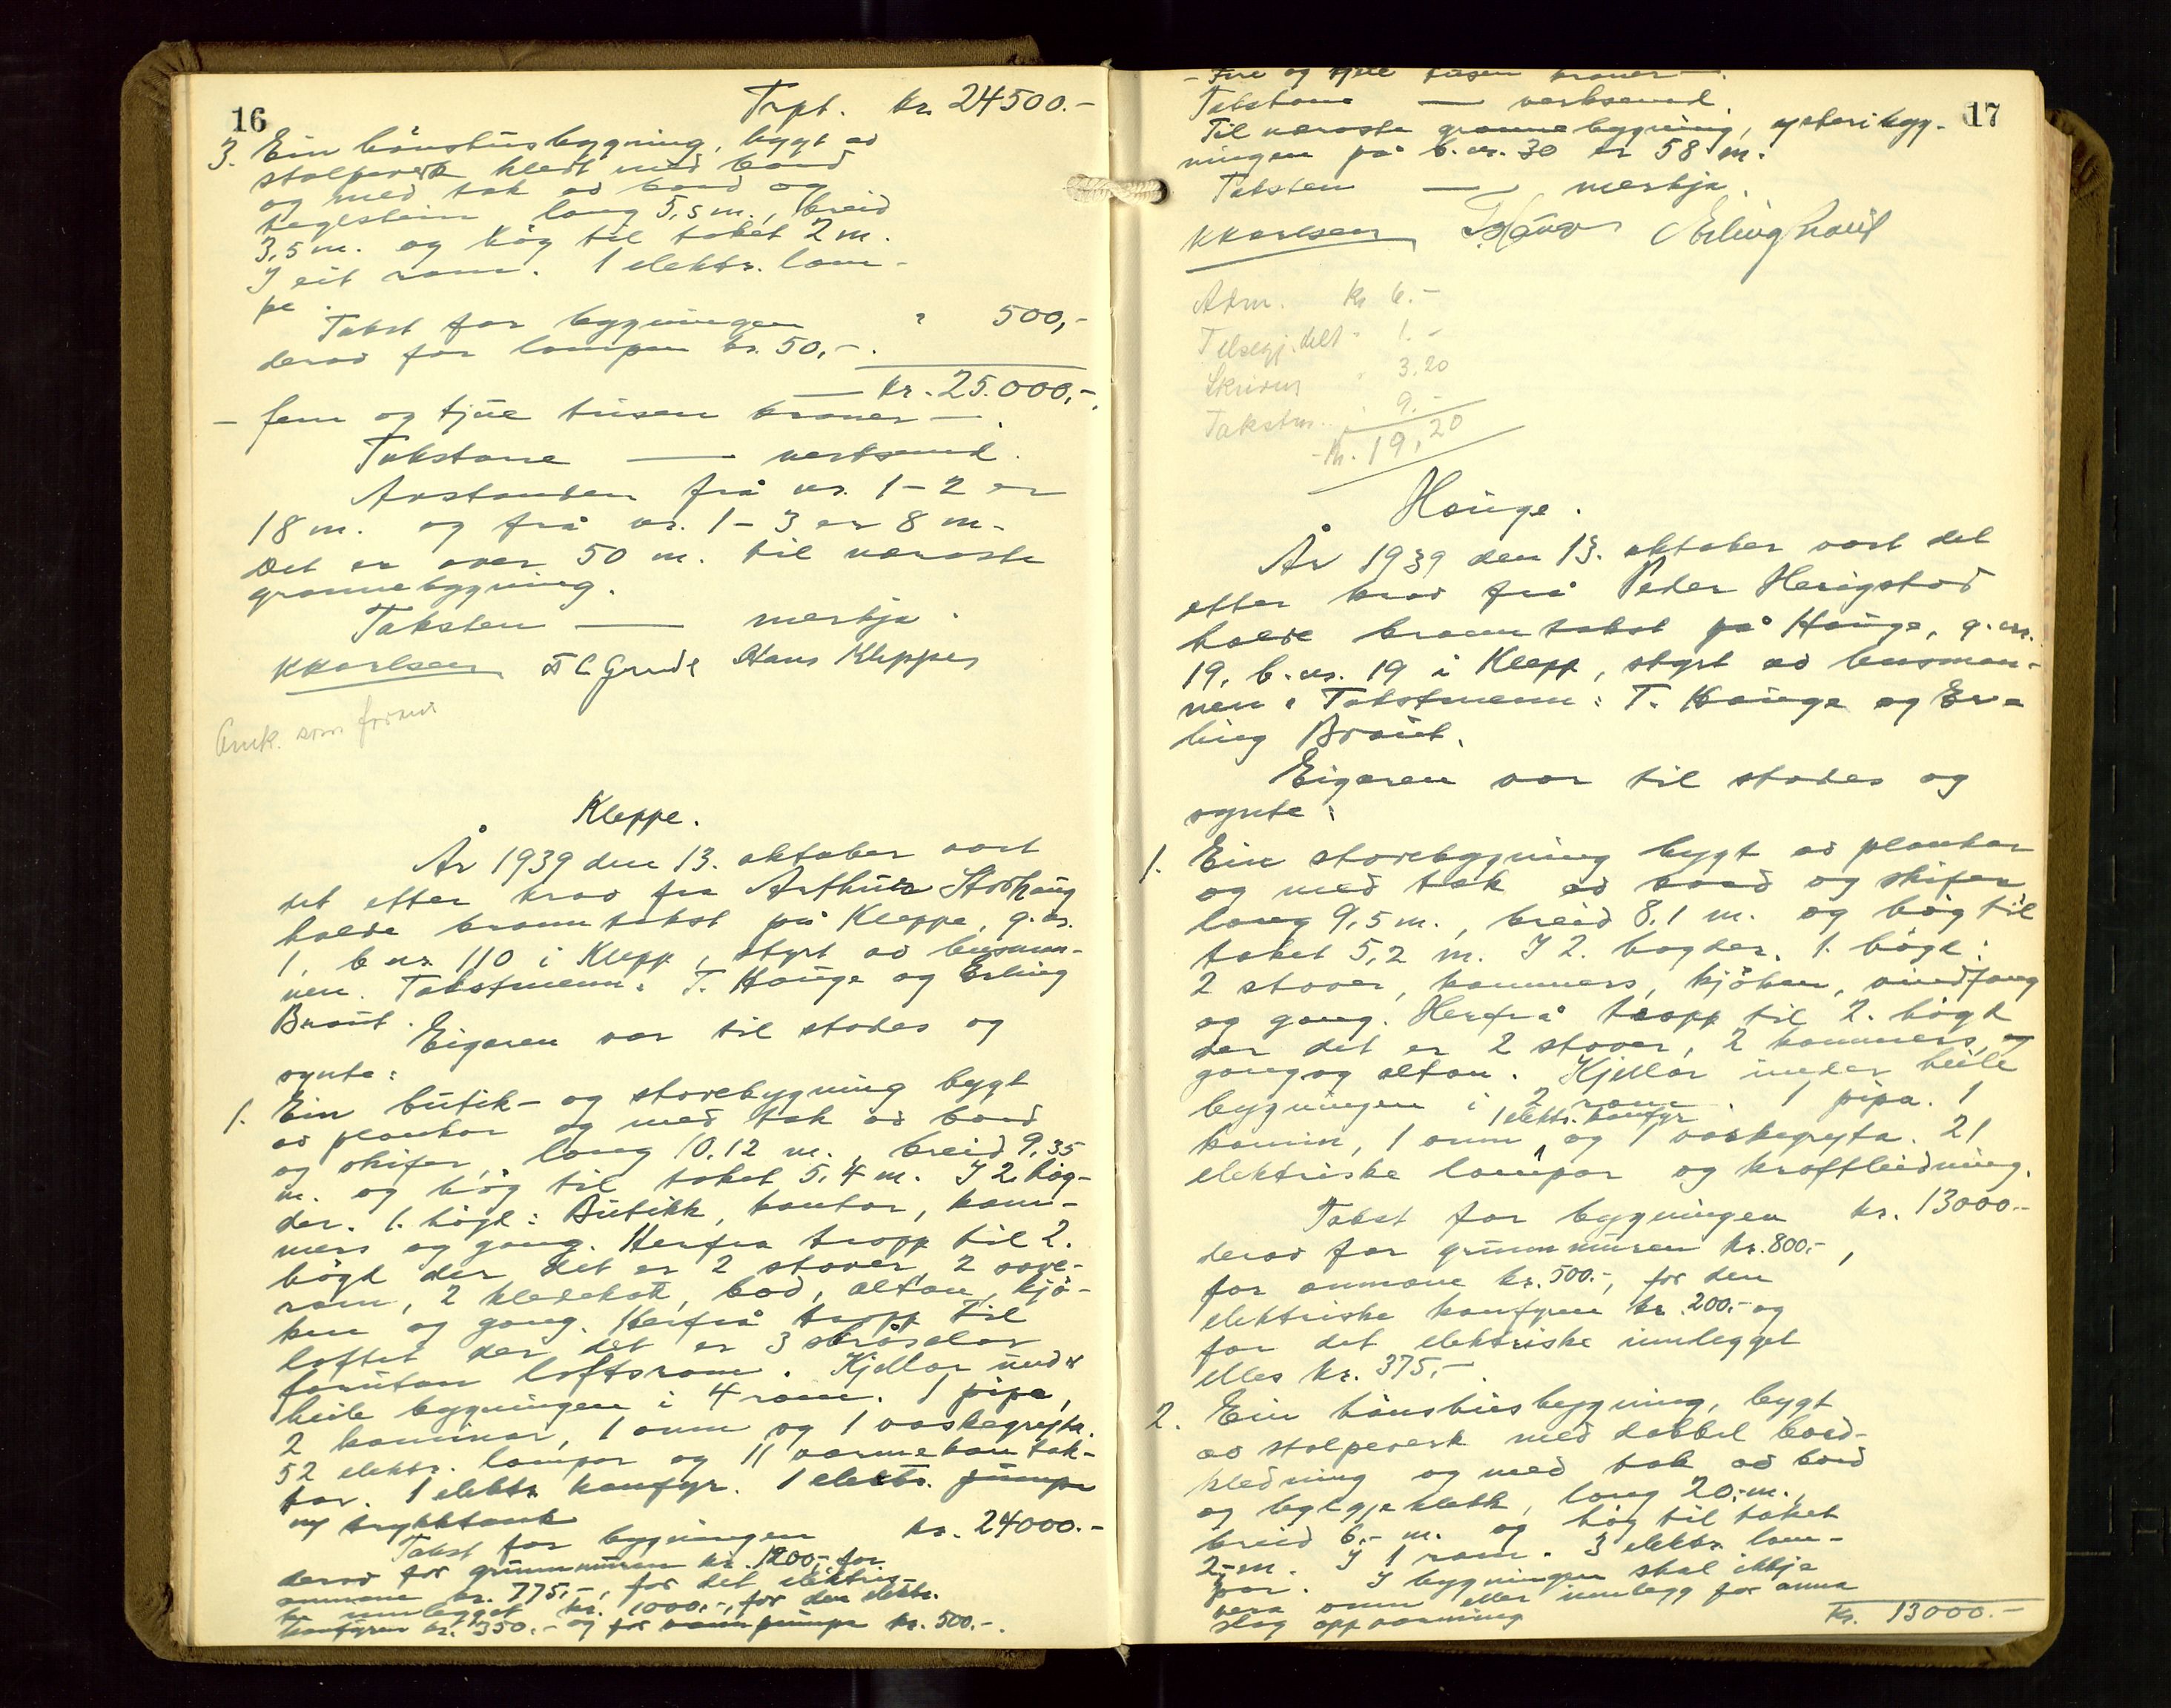 16
Trpt. kr. 24500.-
3. Ein hönsehusbygning, bygt av
stolpeverk kledt med bord
og med tak av bord og
teglstein, lang 5,5 m., breid
3,5 m. og høg til taket 2 m.
I eit rom. 1 elektr. lam-
pe.
Takst for bygningen " 500,-
derav for lampen kr. 50,-.
kr. 25.000,-.
- fem og tjue tusen kroner -.
Takstane — verksemd.
Avstanden frå nr. 1-2 er
18 m. og frå nr. 1-3 er 8 m.
Det er over 50 m. til næraste
grannebygning.
Taksten — merkja.
KKarlsen Grude Hans Kleppe
Omk. som
Kleppe.
År 1939 den 13. oktober vart
det etter krav fra Arthur Stokhaug
halde branntakst på Kleppe, g.nr.
1, b.nr. 110 i Klepp, styrt av lensman-
nen. Takstmenn: T. Hauge og Erling
Braut.
Eigaren var til stades og
synte:
1. Ein butik- og stovebygning bygt
av plankar og med tak av bord
og skifer, lang 10,12 m., breid 9,35
m. og høg til taket 5,4 m. I 2 høg-
der. 1. högd: Butikk, kontor, kam-
mers og gang. Herfra tropp til 2.
högd der det er 2 stover, 2 sove-
rom, 2 kleskott, bod, altan, kjö-
ken og gang. Herfrå tropp til
loftet der det er 3
forutan loftsrom. Kjellar under
heile bygningen i 4 rom. 1 pipe,
2 kaminar, 1 omn og 1 vaskegryta.
52 elektr. lampor og 11 varmekontak-
tar. 1 elektr. komfyr. 1 elektr. pumpe
m/ trykktank
Takst for bygningen kr. 24000.-
derav for grunnmuren kr. 1200,- for
omnane kr. 775,-, for det elektris-
ke innlegget kr. 1000.-, for den elektr.
komfyren kr. 350.- og for vannpumpe kr. 500.-.
17
- Fire og tjue tusen kroner -.
Takstane — verksemd.
Til næraste grannebygning, ysteribyg-
ningen på b.nr. 30 er 58 m.
Taksten — merkja.
KKarlsen T Hauge Erling Braut
Adm. kr 6.-
Tilsegj. delt " 1.-
Skrivm " 3.20
Takstm. " 9.-
Kr. 19,20
Hauge.
År 1939 den 13. oktober vart det
etter krav frå Peder Herigstad
halde branntakst på Hauge, g.nr.
19, b.nr. 19 i Klepp, styrt av lensman-
nen. Takstmenn: T. Hauge og Er-
ling Braut.
Eigaren var til stades og
synte:
1. Ein stovebygning bygt av plankar
og med tak av bord og skifer
lang 9,5 m., breid 8,1 m. og høg til
taket 5,2 m. I 2. hogder. 1. högd:
2 stover, kammers, kjöken, vindfang
og gang. Herfrå tropp til 2. högd
der det er 2 stover, 2 kammers, og
gang og altan. Kjellar under heile
bygningen i 2 rom. 1 pipa. 1
1 elektr. komfyr
kamin, 1 omn, og 1 vaskegryta. 21
elektriske lampor og kraftleidning.
Takst for bygningen kr. 13000.-
derav for grunnmuren kr. 800,-,
for omnane kr. 500.-, for den
elektriske komfyren kr. 200,- og
for det elektriske innlegget
elles kr. 375,-.
2. Ein hönsehusbygning, bygt
av stolpeverk med dobbel bord-
kledning og med tak av bord
og lang 20,- m.,
breid 6,- m. og høg til taket
2,- m. I 1 rom. 3 elektr. lam-
por. I bygningen skal ikkje
vera omn eller innlegg for anna
slag oppvarming
Kr. 13000.-